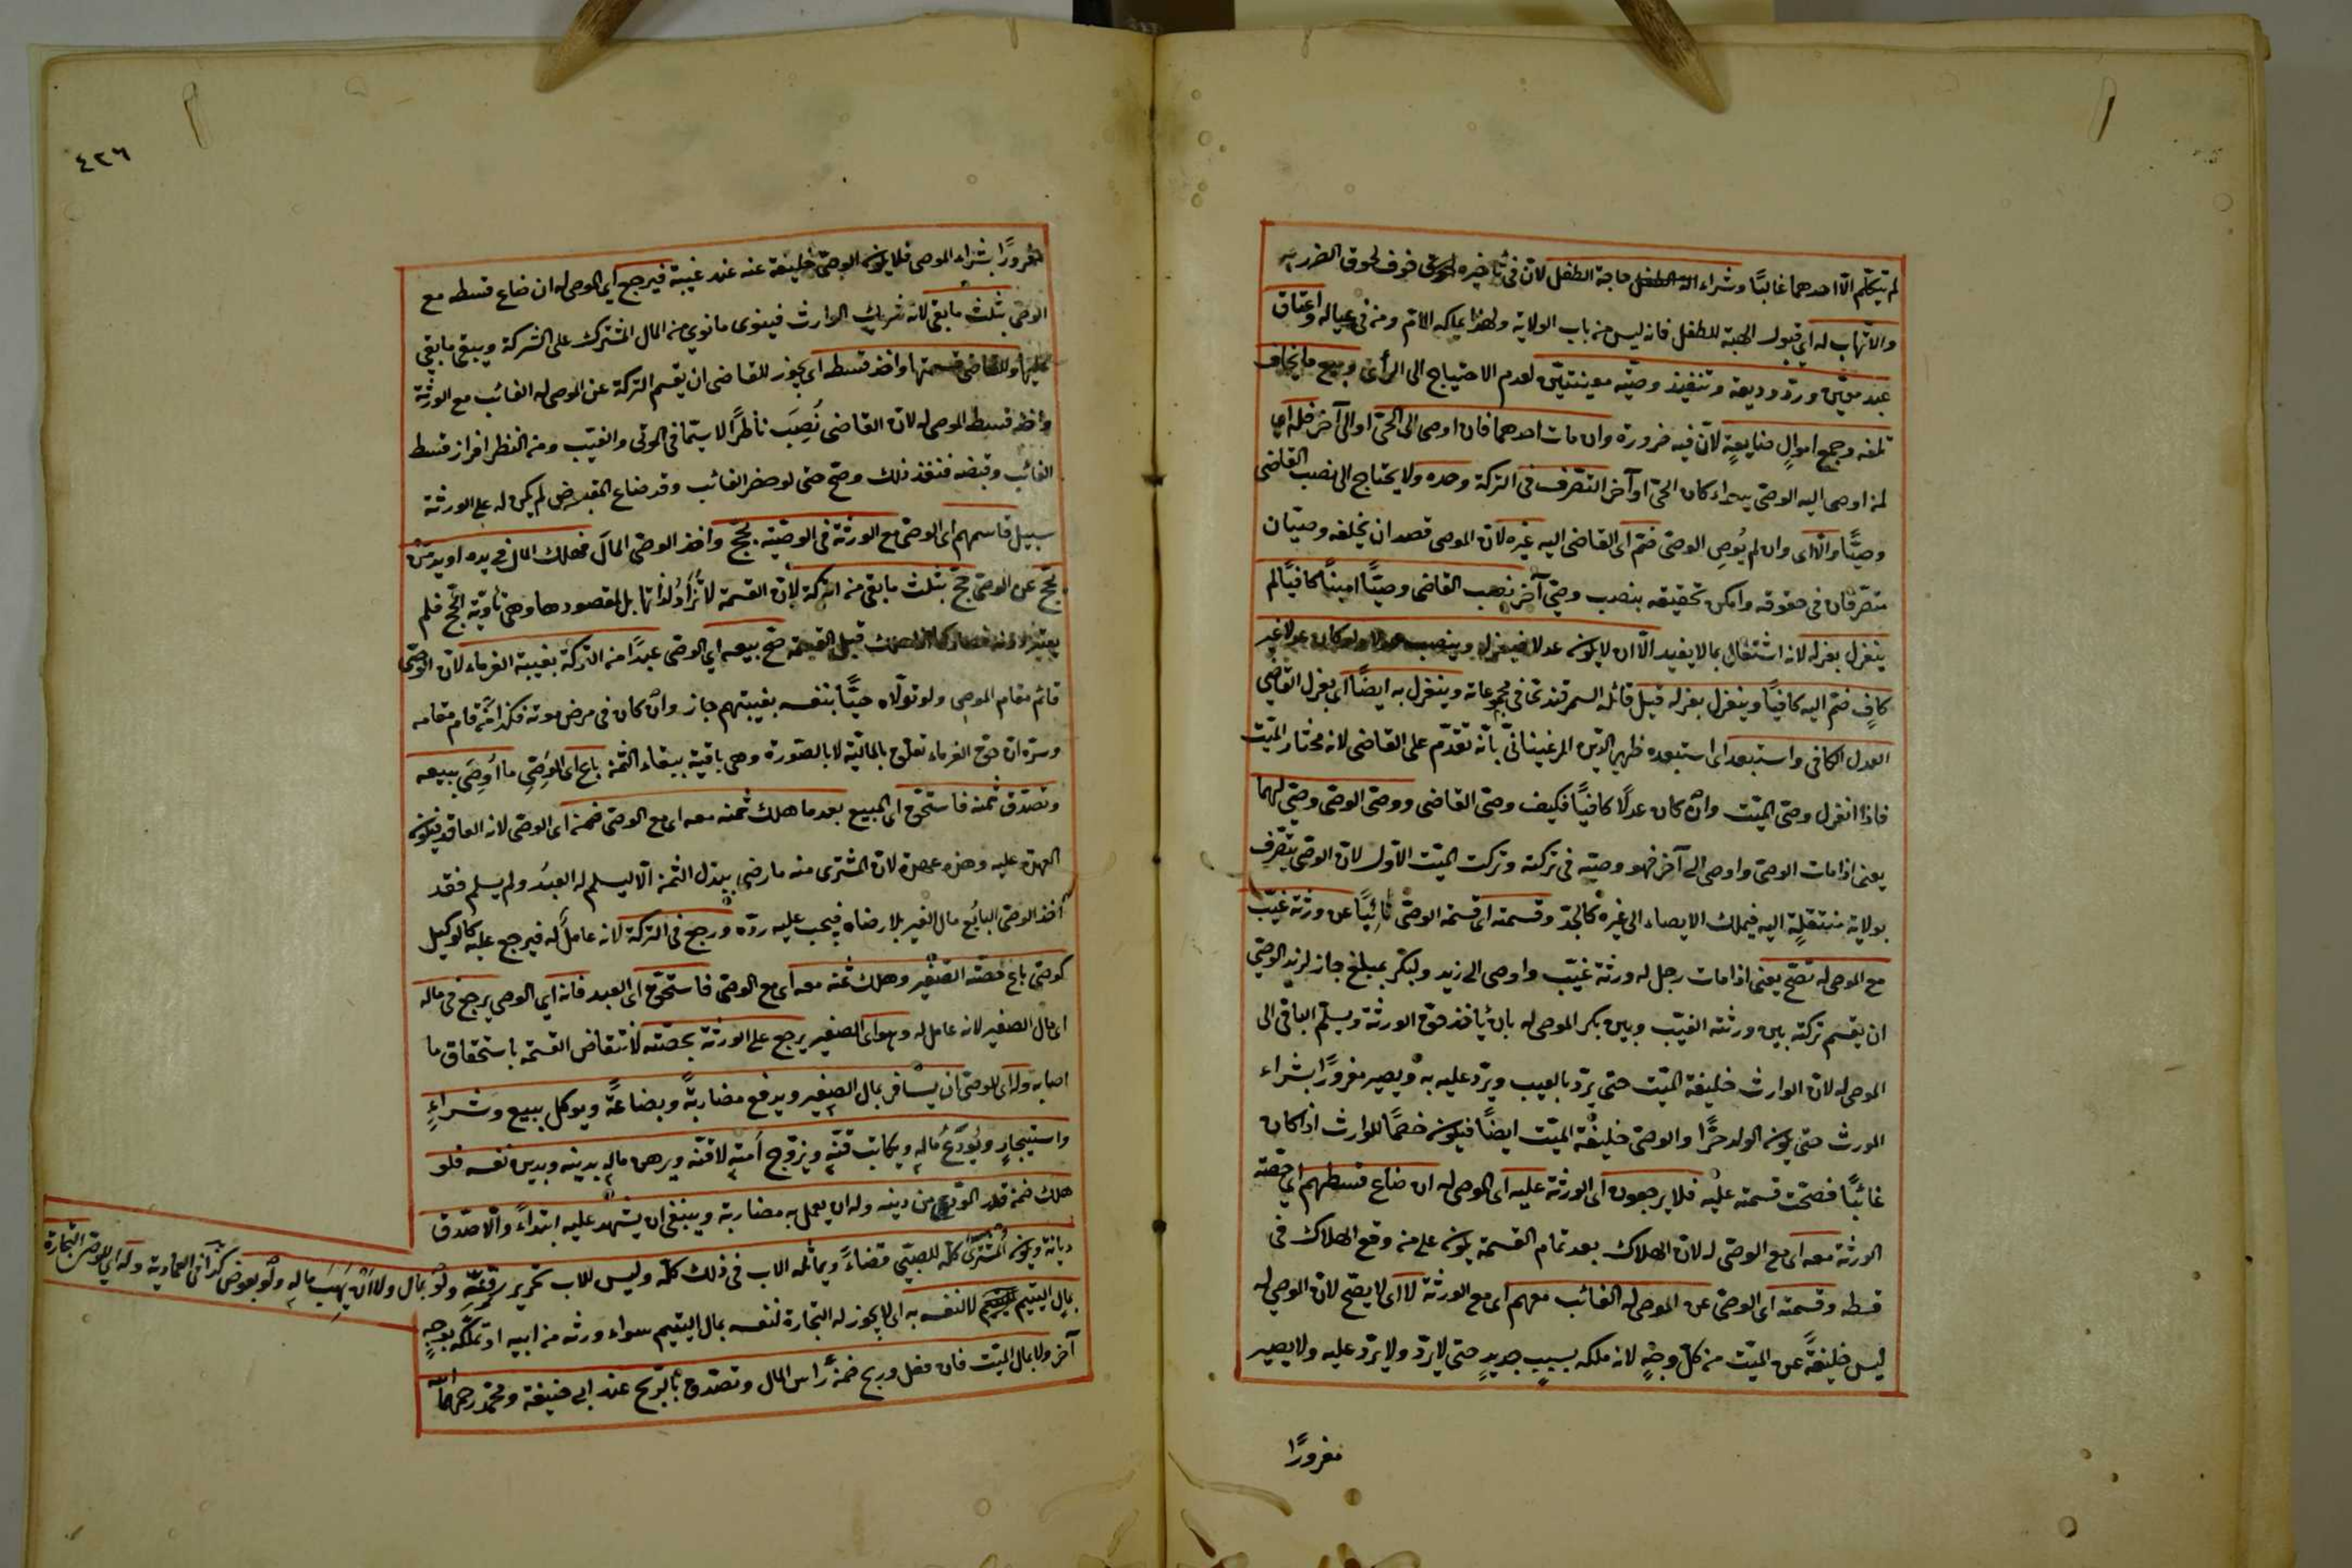 لم يتكلم الا احدهما غالبًا وشراء حاجة الطفل لان في تأخيره خوف لحوق الضرر به
والاتهاب له اي قبول الهبة للطفل فانه ليس من باب الولاية ولهذا يملكه الام ومن في عياله واعتاق
عبد معين ورد وديعة وتنفيذ وصية معينتين لعدم الاحتياج الى الرأى وبيع ما يخاف
تلفه وجمع اموالٍ ضايعةٍ لان فيه ضرورة وان مات احدهما فان اوصى الى الحي او الى آخر فله اي
لمن اوصى اليه الوصي سواء كان الحي او آخر التصرف في التركة وحده ولا يحتاج الى نصب القاضي
وصيًّا والا اى وان لم يُوصِ الوصى ضم اى القاضى اليه غيره لان الموصى قصد ان يخلفه وصيان
متصرفان في حقوقه وامكن تحقيقه بنصب وصي آخر نصب القاضى وصيًّا امينًا كافيًا لم
ينعزل بعزله لانه اشتغال بما لا يفيد الا ان لا يكون عدلا فيعزله وينصب عدلا ولو كان عدلا غير
كافٍ ضم اليه كافيًا وينعزل بعزله قيل قائله السمرقندى في مجموعاته وينعزل به ايضًا اى بعزل القاضي
العدل الكافي واستبعد اى استبعده ظهير الدين المرغيناني بانه تقدم على القاضى لانه مختار الميت
فاذا انعزل وصى الميت وان كان عدلًا كافيًا فكيف وصى القاضى ووصى الوصى وصي لهما
يعنى اذا مات الوصى واوصى الى آخر فهو وصيه في تركته وتركت الميت الاول لان الوصى يتصرف
بولاية منتقلةٍ اليه فيملك الايصاء الى غيره كالجد وقسمته اى قسمة الوصى نائبًا عن ورثة غيب
مع الموصى له تصح يعنى اذا مات رجل له ورثة غيب واوصى الى زيد ولبكر بمبلغ جاز لزيد الوصي
ان يقسم تركته بين ورثته الغيب وبين بكر الموصى له بان يأخذ حق الورثة ويسلم الباقي الى
الموصى له لان الوارث خليفة الميت حتى يرد بالعيب ويرد عليه به ويصير مغرورًا بشراء
المورث حتى يكون الولد حرًّا والوصى خليفة الميت ايضًا فيكون خصمًا للوارث اذا كان
غائبًا فصحت قسمته عليه فلا يرجعون اى الورثة عليه اى الموصى له ان ضاع قسطهم اي حصة
الورثة معه اى مع الوصى له لان الهلاك بعد تمام القسمة يكون على من وقع الهلاك في
قسطه وقسمته اى الوصى عن الموصى له الغائب معهم اى مع الورثة لا اى لا يصح لان الموصى له
ليس خليفةً عن الميت من كل وجهٍ لانه ملكه بسببٍ جديدٍ حتى لا يرد ولا يرد عليه ولا يصير
مغرورًا
٤٢٦
مغرورًا بشراء الموصى فلا يكون الوصى خليفة عنه عند غيبته فيرجع اي الموصى له ان ضاع قسطه مع
الوصى بثلث ما بقى لانه شريك الوارث فيتوى ما توي من المال المشترك على الشركة ويبقى ما بقي
عليها وللقاضى قسمتها واخذ قسطه اى يجوز للقاضى ان يقسم التركة عن الموصى له الغائب مع الورثة
واخذ قسط الموصى له لان القاضى نُصِبَ ناظرًا لا سيما في الموتى والغيب ومن النظر افراز قسط
الغائب وقبضه فنفذ ذلك وصح حتى لو حضر الغائب وقد ضاع المقبوض لم يكن له على الورثة
سبيل قاسمهم اى الوصى مع الورثة في الوصية بحج واخذ الوصى المال فهلك المال في يده او يد من
يحج عن الوصى حج بثلث ما بقى من التركة لان القسمة لا تُرادُ لذاتها بل لمقصودها وهى تأدية الحج فلم
يعتبر دونه فصار كما اذا هلك قبل القسمة صح بيعه اي الوصى عبدًا من التركة بغيبة الغرماء لان الوصى
قائم مقام الموصى ولو تولاه حيًّا بنفسه بغيبتهم جاز وان كان في مرض موته فكذا من قام مقامه
وسره ان حق الغرماء تعلق بالمالية لا بالصورة وهى باقية ببقاء الثمن باع اى الوصي ما اوصى ببيعه
وتصدق ثمنه فاستحق اى المبيع بعد ما هلك ثمنه معه اى مع الوصى ضمن اى الوصى لانه العاقد فيكون
العهدة عليه وهذه عهدة لان المشترى منه ما رضى ببذل الثمن الا ليسلم له العبدُ ولم يسلم فقد
اخذ الوصى البائع مال الغير بلا رضاه فيجب عليه رده ورجع في التركة لانه عاملٌ له فيرجع عليه كالوكيل
كوصي باع حصة الصغير وهلك ثمنه معه اى مع الوصى فاستحق اى العبد فانه اي الوصي يرجع في ماله
اى مال الصغير لانه عامل له وهو اى الصغير يرجع على الورثة بحصته لانتقاض القسمة باستحقاق ما
اصابه وله اى للوصى ان يسافر بمال الصغير ويدفع مضاربةً وبضاعةً ويوكل ببيع وشراءٍ
واستيجارٍ ويُودِعُ ماله ويكاتب قنه ويزوج أمته لا قنه ويرهن ماله بدينه وبدين نفسه فلو
هلك ضمن قدر من دينه وله ان يعمل به مضاربة وينبغى ان يشهد عليه ابتداءً والا صدق
ديانة ويكون المشترى كله للصبي قضاءً ويماثله الاب في ذلك كله وليس للاب تحرير رقيقه ولو بمال ولا ان يهب ماله ولو بعوض كذا في العمادية وله اي للوصى التجارة
بمال اليتيم لليتيم لا لنفسه به اى لا يجوز له التجارة لنفسه بمال اليتيم سواء ورثه من ابيه او تملكه بوجهٍ
آخر ولا بمال الميت فان فعل وربح ضمن رأس المال وتصدق بالربح عند ابى حنيفة ومحمد رحمهما الله